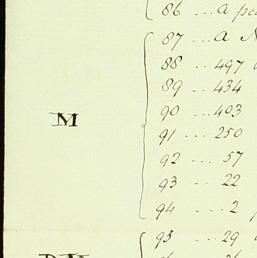 86 ... a
87 ... a N
88 .. 497
89 .. 434
90 ... 403
M
91 ... 250
92 ... 57
93 ... 22
94 ... 2
95 ... 29